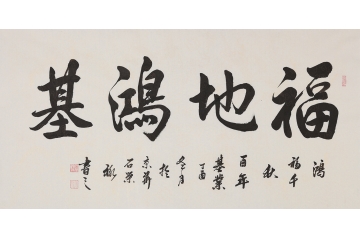 福地鴻基
鴻
福千
秋
百年
基業
丁酉
冬月
於
京華
石景
書之